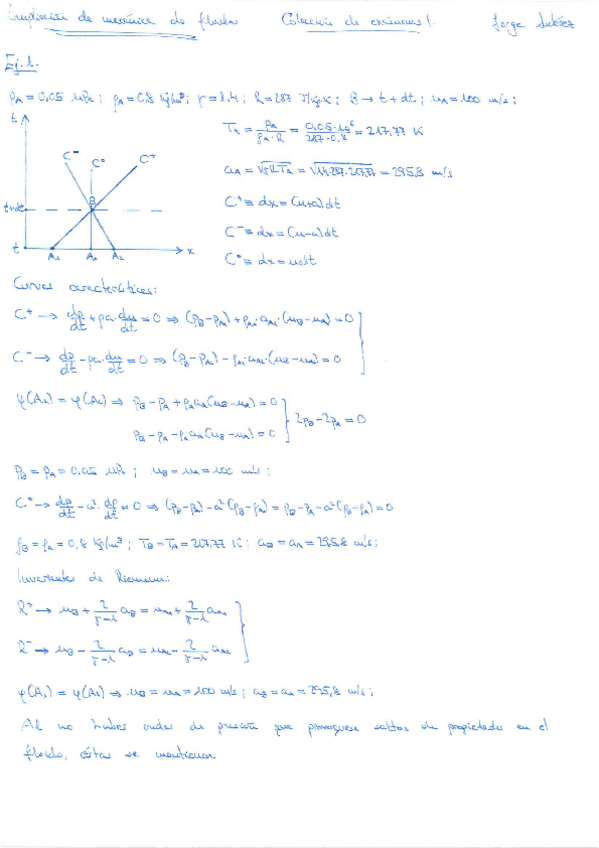 Ampliación de mecánica de fluidos Colección de exámenes 1. Jorge
Ej. 1.
p_A = 0,05 MPa ; ρ_A = 0,8 kg/m³ ; γ = 1.4 ; R = 287 J/kg·K ; B → t + dt ; u_A = 100 m/s ;
t
T_A = p_A / (ρ_A · R) = 0.05·10⁶ / (287·0.8) = 217.77 K
C⁻ C° C⁺
a_A = √(γRT_A) = √(1.4·287·217.77) = 295.8 m/s
t+dt B
C⁺ ≡ dx = (u+a)dt
C⁻ ≡ dx = (u−a)dt
t A₁ A₀ A₂ x
C° ≡ dx = udt
Curvas características:
C⁺ → dp/dt + ρa · du/dt = 0 ⇒ (p_B − p_A₁) + ρ_A₁ · a_A₁ · (u_B − u_A₁) = 0
C⁻ → dp/dt − ρa · du/dt = 0 ⇒ (p_B − p_A₂) − ρ_A₂ · a_A₂ · (u_B − u_A₂) = 0
φ(A₁) = φ(A₂) ⇒ p_B − p_A + ρ_A a_A (u_B − u_A) = 0
p_B − p_A − ρ_A a_A (u_B − u_A) = 0 } 2p_B − 2p_A = 0
p_B = p_A = 0.05 MPa ; u_B = u_A = 100 m/s ;
C° → dp/dt − a² · dρ/dt = 0 ⇒ (p_B − p_A) − a² (ρ_B − ρ_A) = p_B − p_A − a² (ρ_B − ρ_A) = 0
ρ_B = ρ_A = 0,8 kg/m³ ; T_B = T_A = 217,77 K ; a_B = a_A = 295.8 m/s ;
Invariantes de Riemann:
R⁺ → u_B + 2/(γ−1) a_B = u_A₁ + 2/(γ−1) a_A₁
R⁻ → u_B − 2/(γ−1) a_B = u_A₂ − 2/(γ−1) a_A₂
φ(A₁) = φ(A₂) ⇒ u_B = u_A = 100 m/s ; a_B = a_A = 295,8 m/s ;
Al no haber ondas de presión que provoquen saltos de propiedades en el
fluido, éstas se mantienen